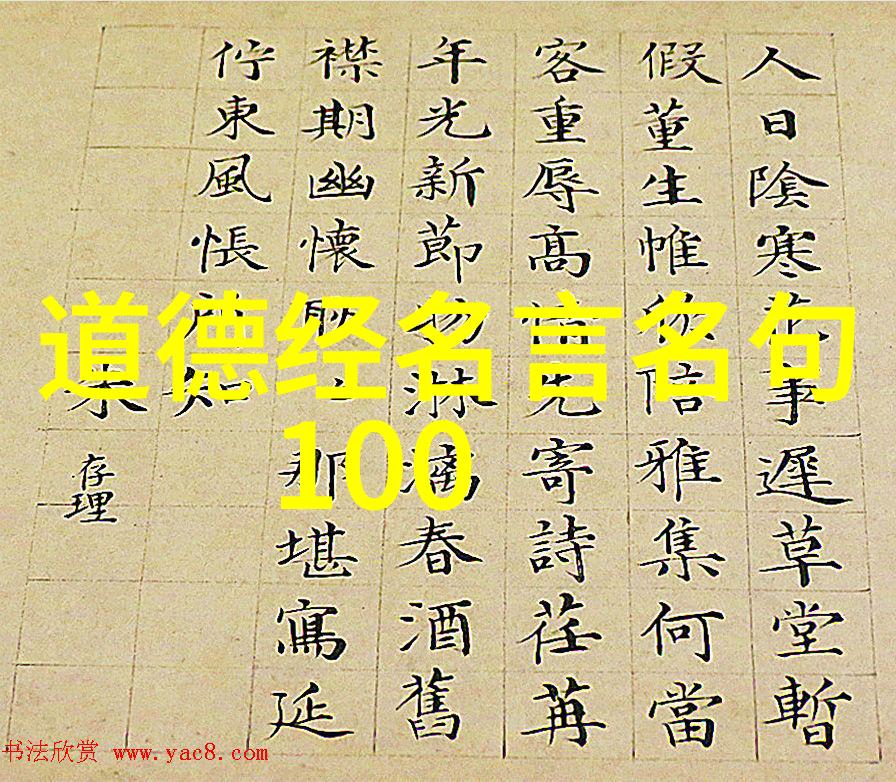 道德经名言名句
100
人日陰寒花事遲草堂暫
假董生帷陪雅集何當
客重辱高情先寄詩荏苒
年光新節物淋漓春酒舊
襟期幽懷那堪寫延
佇東風悵知
未
存理
书法欣赏 www.yac8.com